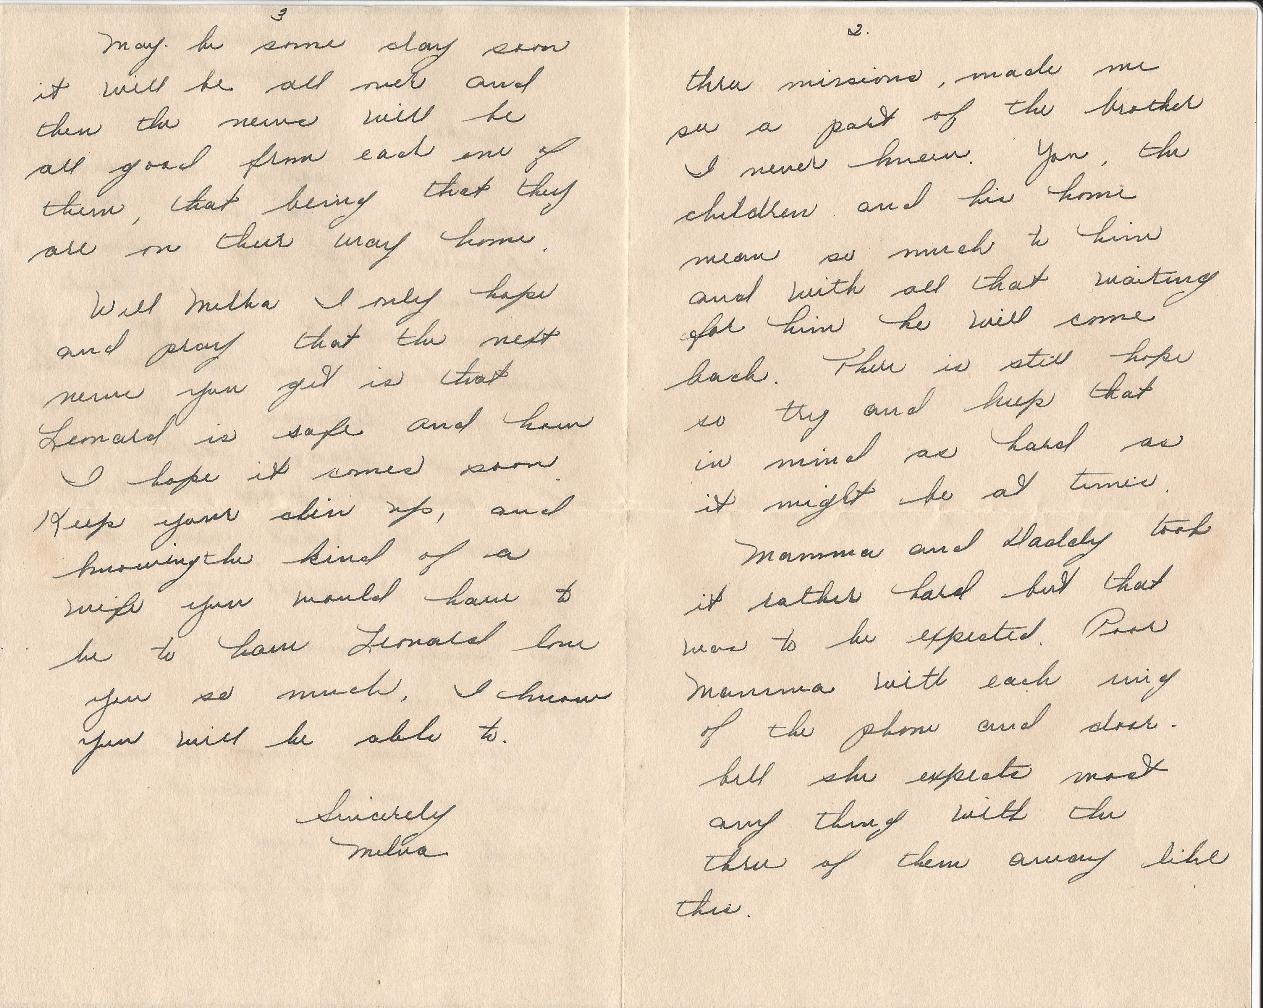 2.
three missions, made me
see a part of the brother
I never knew. You, the
children and his home
mean so much to him
and with all that waiting
for him he will come
back. There is still hope
so try and keep that
in mind as hard as
it might be at times.
Mamma and Daddy took
it rather hard but that
was to be expected. Poor
Mamma with each ring
of the phone and door-
bell she expects most
any thing with the
three of them away like
this.
3
May be some day soon
it will be all over and
then the news will be
all good from each one of
them, that being that they
are on their way home.
Well Melba I only hope
and pray that the next
news you get is that
Leonard is safe and how
I hope it comes soon.
Keep your chin up, and
knowing the kind of a
wife you would have to
be to have Leonard love
you so much, I know
you will be able to.
Sincerely
Melva